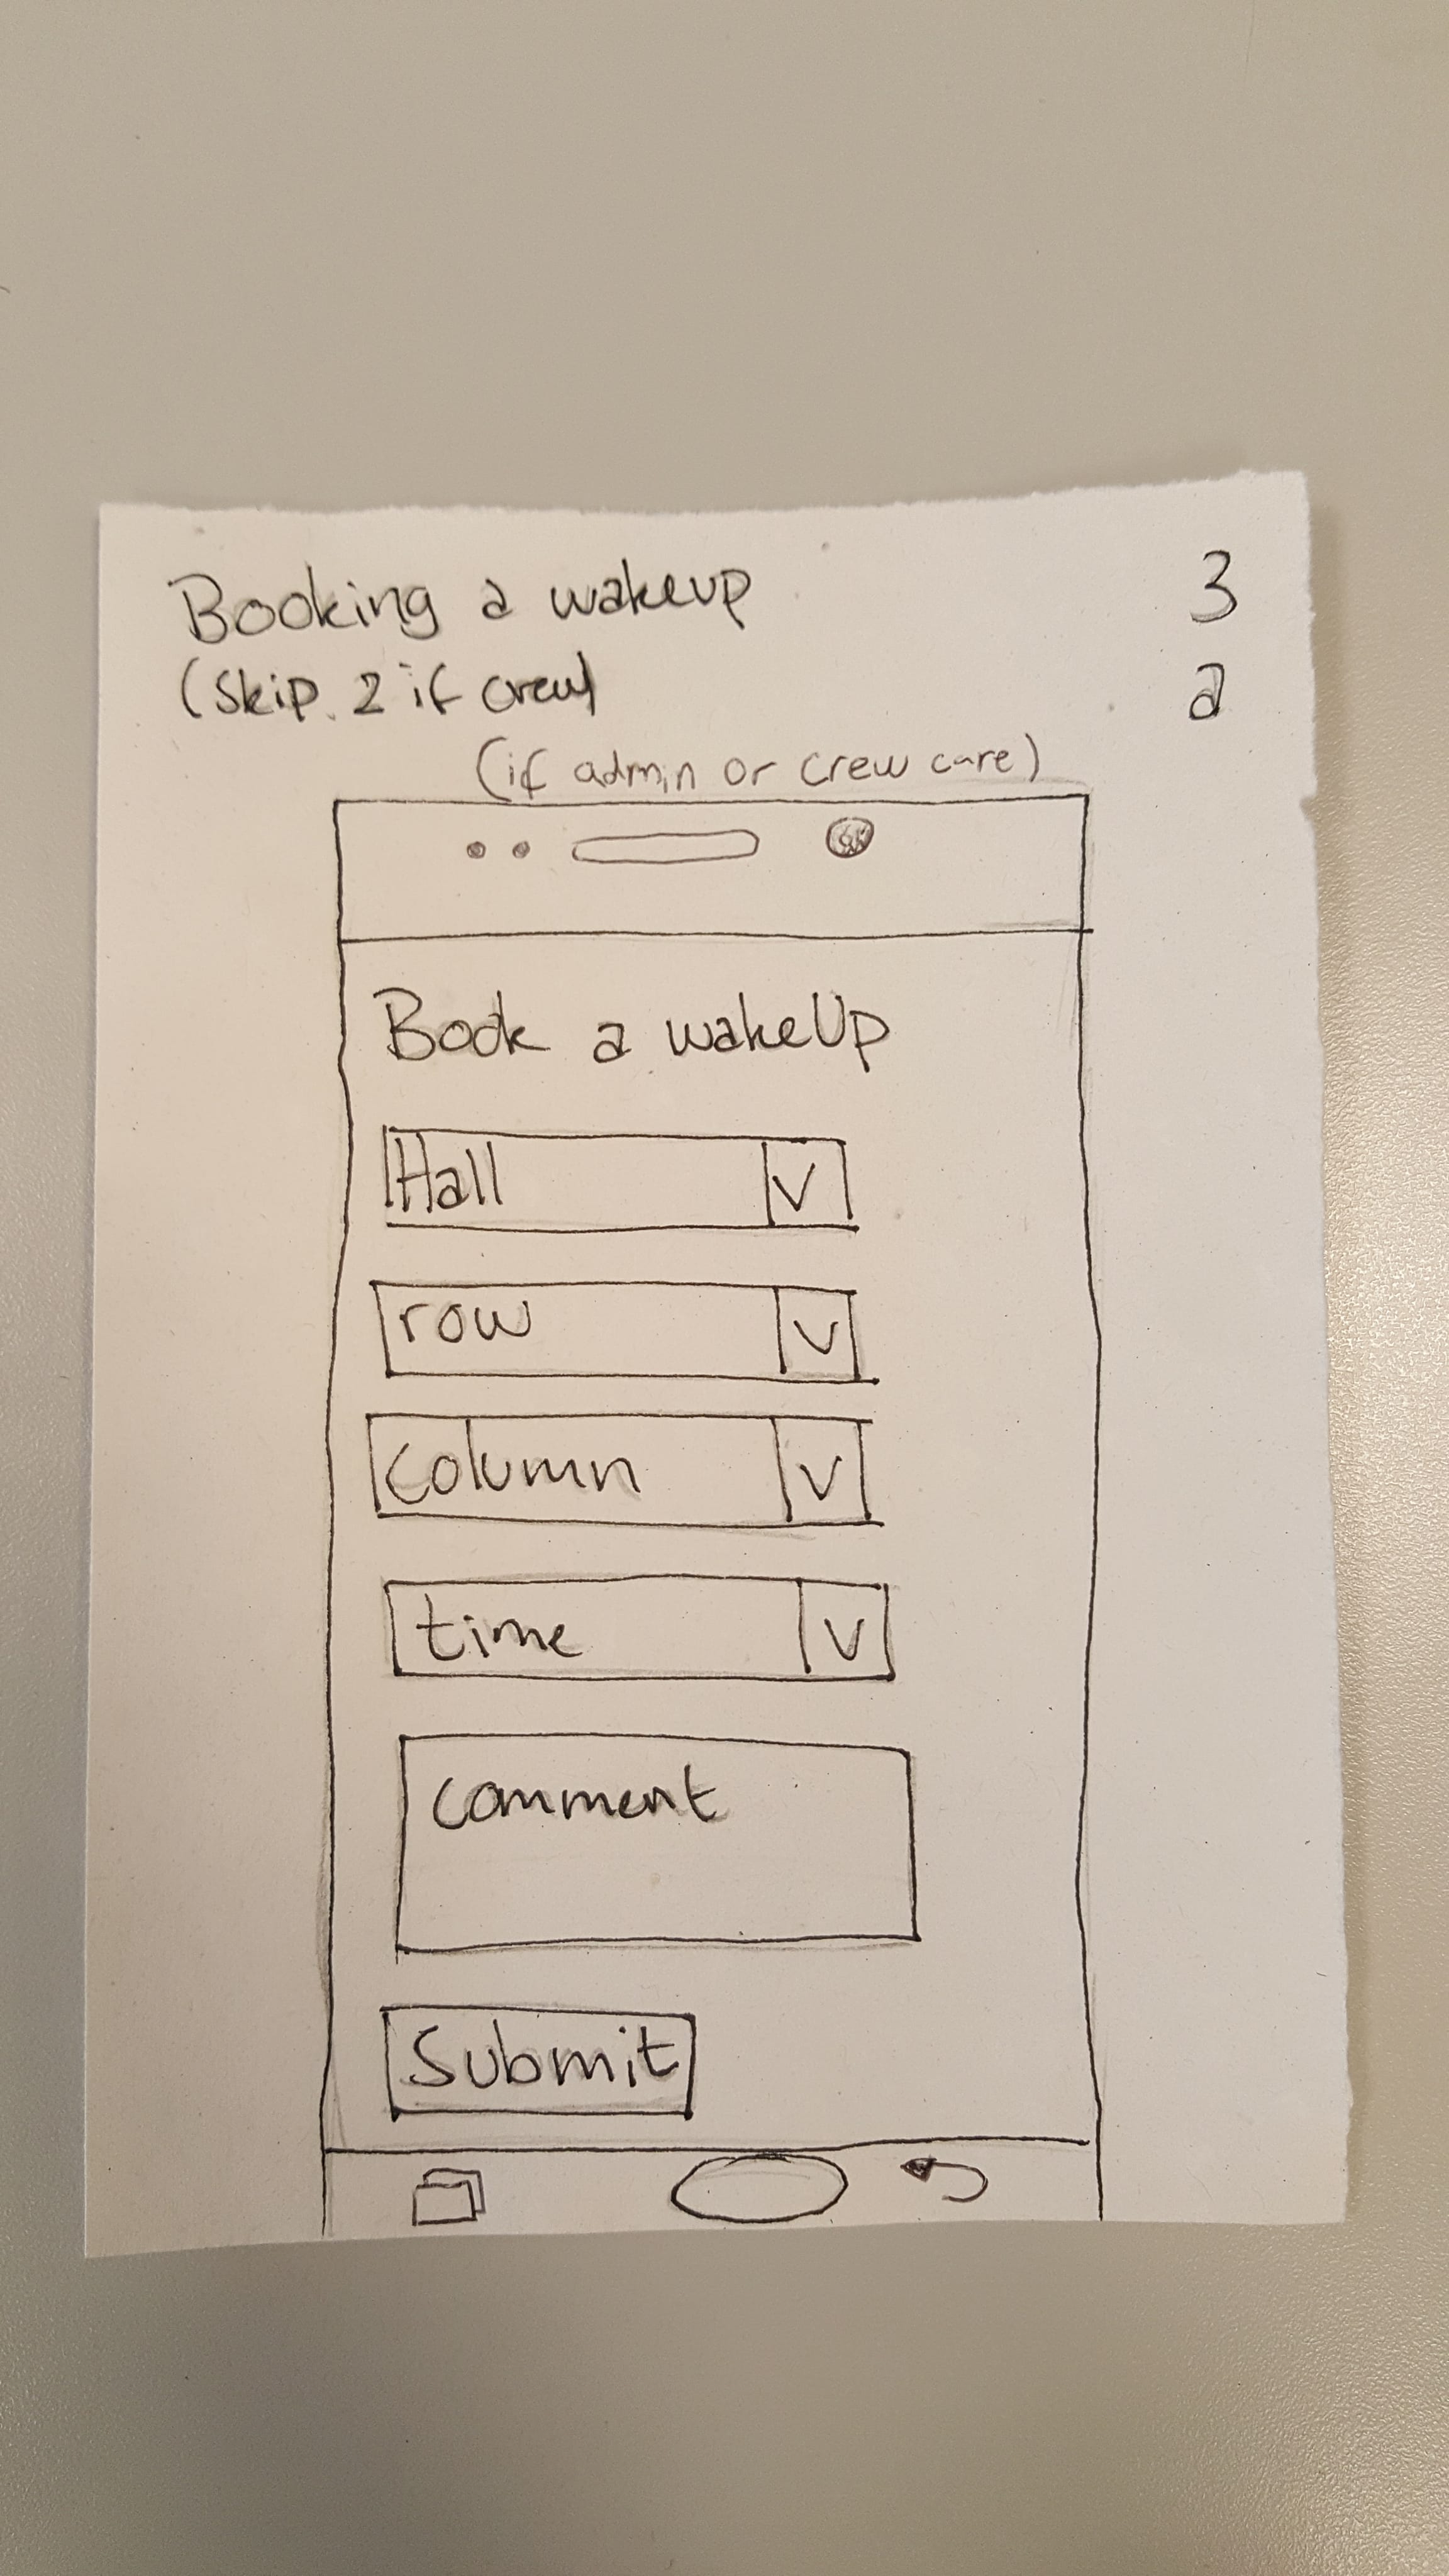 Booking a wakeup 3
(Skip 2 if crew) a
(if admin or crew care)
Book a wakeUp
Hall V
row V
column V
time V
comment
Submit